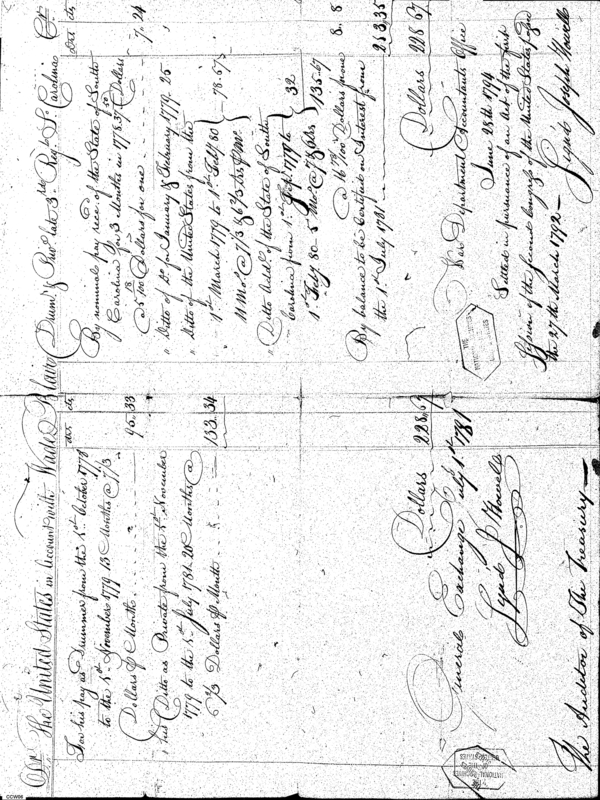 Dr. The United States in Account with Wade Blair Drumr. & Priv. late 3d Regt. So. Carolina Cr.
dlrs cts
For his pay as Drummer from the 1st October 1778
to the 1st November 1779 13 Months @ 7 1/3
Dollars ⅌ Month 95.33
his Ditto as Private from the 1st November
1779 to the 1st July 1781 20 Months @
6 2/3 Dollars ⅌ Month 133.34
Dollars 228.67
General Exchange July 1st 1781
Signd J Howell
The Auditor of The Treasury
dlrs cts
By nominal pay recd of the State of South
Carolina for 3 Months in 1778
Dollars for one 7.24
" Ditto of Do. for January & February 1779 .25
" Ditto of the United States from the
1st March 1779 to 1st Feby. 80
11 Mos. @ 7 1/3 & 6 2/3 drs ⅌ Mo. 78.67
" Ditto Addl. of the State of South
Carolina from 1st 1779 to 32
1st Feby 80 5 Mos. @ 7 135.67
@ 16 /100 Dollars ⅌ one 8.8
By balance to be Certified on Interest from
the 1st July 1781 253.35
Dollars 228 67
War Department Accountants Office
June 28th 1794
Settled in pursuance of an Act of the first
Session of the Second Congress of the United States passed
the 27th March 1792 —
Signd Joseph Howell
NATIONAL ARCHIVES
OF THE
UNITED STATES
CCW66